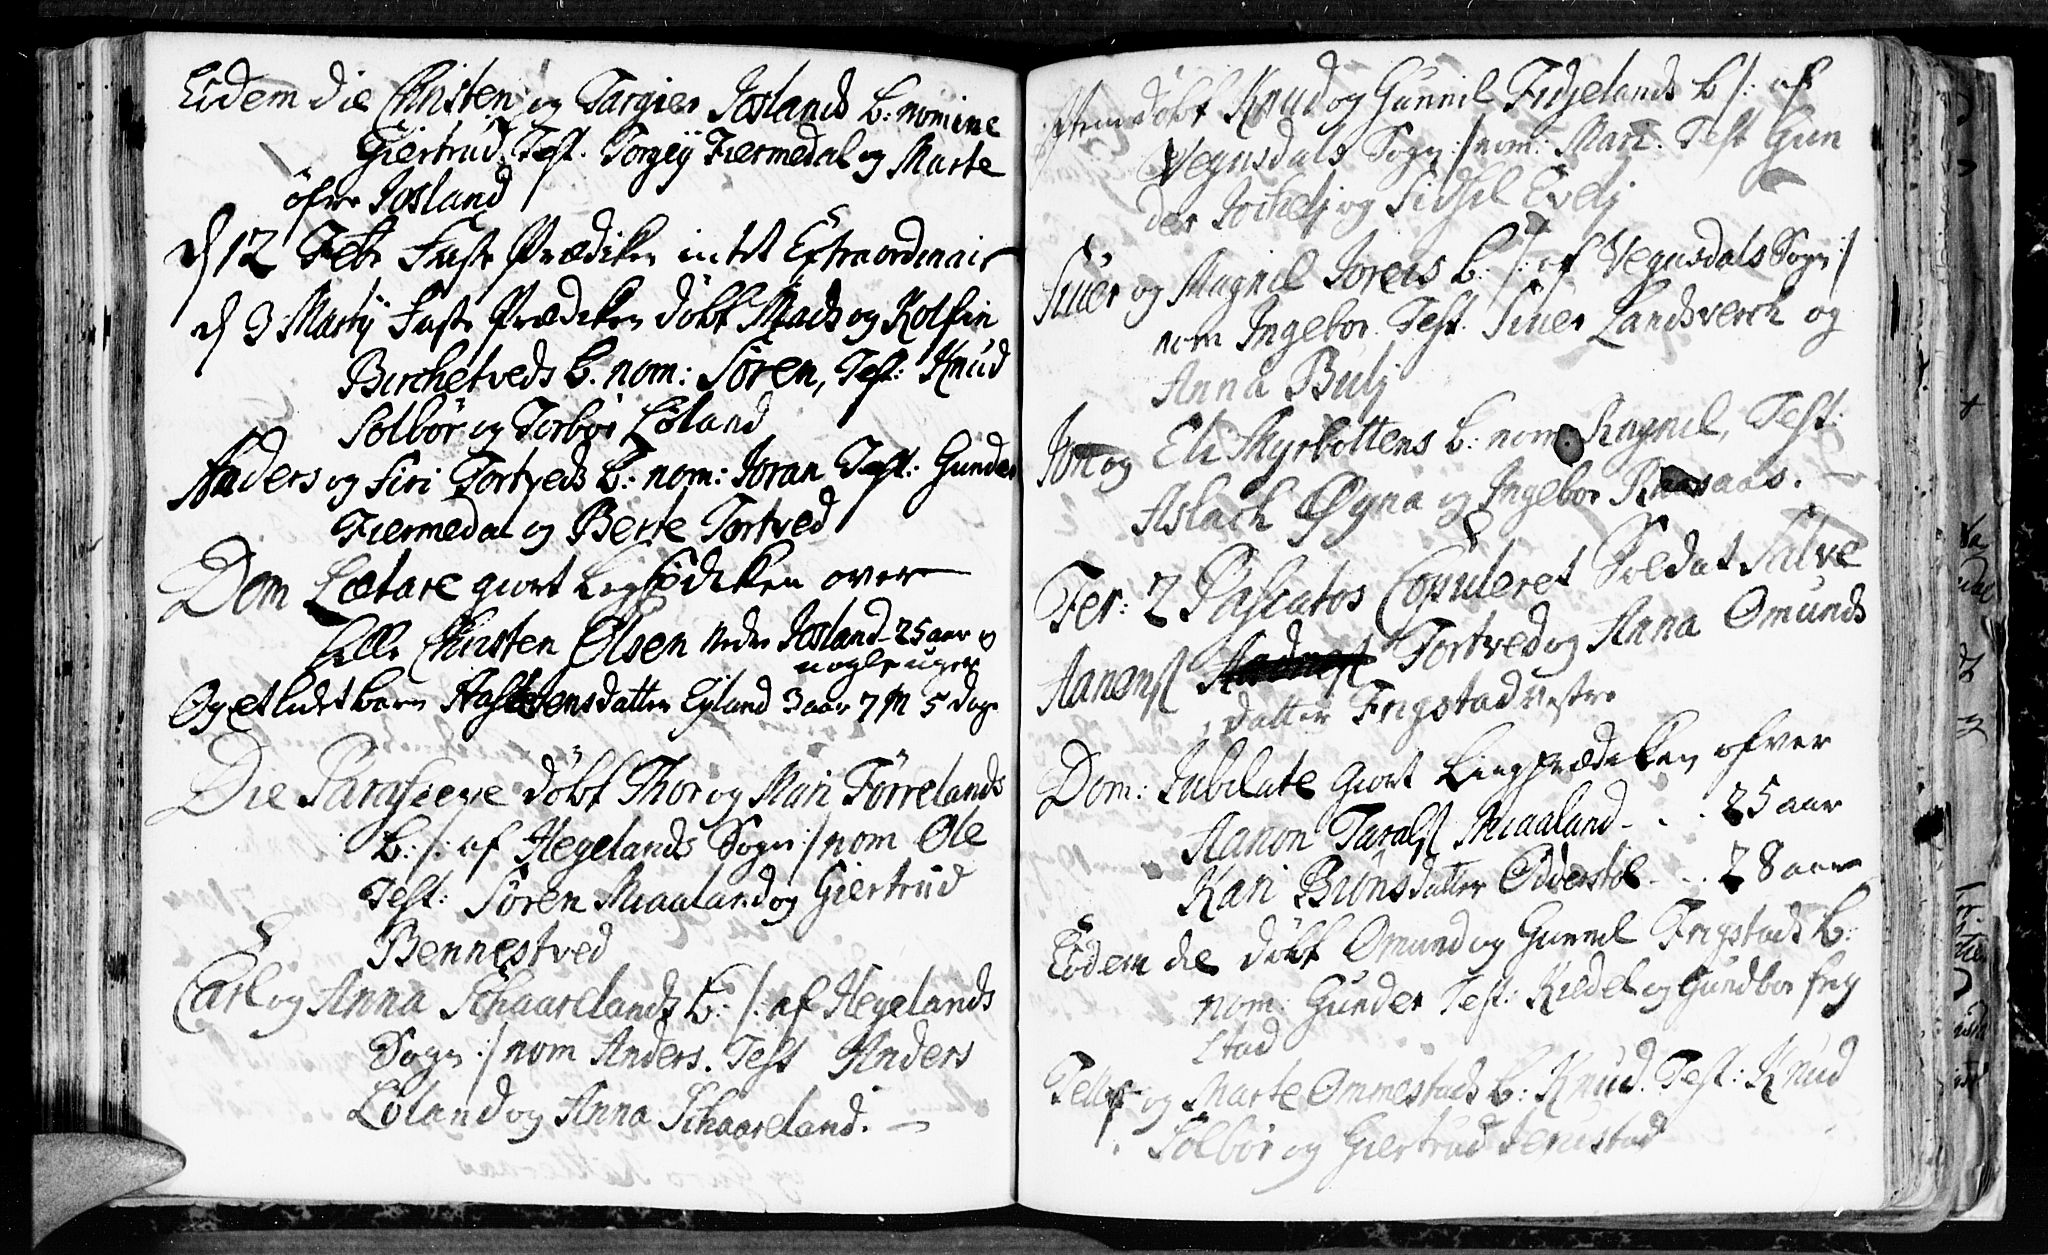 Eodem die Christen og Targier Joslands b: nomine
Giertrud, Test. Torgiÿ Fiermedal og Marte
öfre Josland
d 12 Febr Faste Prædiken intet Extraordinair
d 3 Martÿ Faste Prædiken döbt Mads og Kolfin
Birchetveds b. nom: Sören, Test: Knud
Solbör og Torbör Löland
Anders og Siri Tortveds b: nom: Joran Test: Gunder
Fiermedal og Berte Tortved
Dom Lætare giort Ligprædiken over
Christen Olsen Nedre Josland - 25 aar og
nogle uger
Og et lidet barn datter Eyland 3 aar 7 M 5 dage
Die Parasceve döbt Thor og Mari Förrelands
b: /: af Hegelands Sogn :/ nom Ole
Test: Sören Miaaland og Giertrud
Bennestved
Carl og Anna Schaarelands b: /: af Hegelands
Sogn :/ nom Anders. Test Anders
Löland og Anna Schaareland. -
döbt Knud og Gunnil Fidjelands b /: af
Vegusdals Sogn :/ nom: Mari. Test Gun
der og Sidsel Evelj
Siuer og Magnil Joreis b: /: af Vegusdals Sogn :/
nom Ingebor. Test. Siuer Landsverch og
Anna Bulj
Jon og Eli Myrbottens b: nom: Ragnil, Test:
Aslach Øyna og Ingebor Raasaas. -
Fer: 2 Paschatos Copuleret Soldat Salve
Aanensß Tortved og Anna Omunds
datter Frigstad vestre
Dom: Jubilate giort Liigprædiken ofver
Aanon Taralsß Miaaland - . . 25 aar
Kari Biönsdatter Odderstöl - . . 28 aar
Eodem die döbt Omund og Gunnil Frigstads b:
nom: Gunder Test: Kiedel og Gundbor Frig
stad
Tellef og Marte Ommestads b: Knud. Test: Knud
Solbör og Giertrud Jerustad